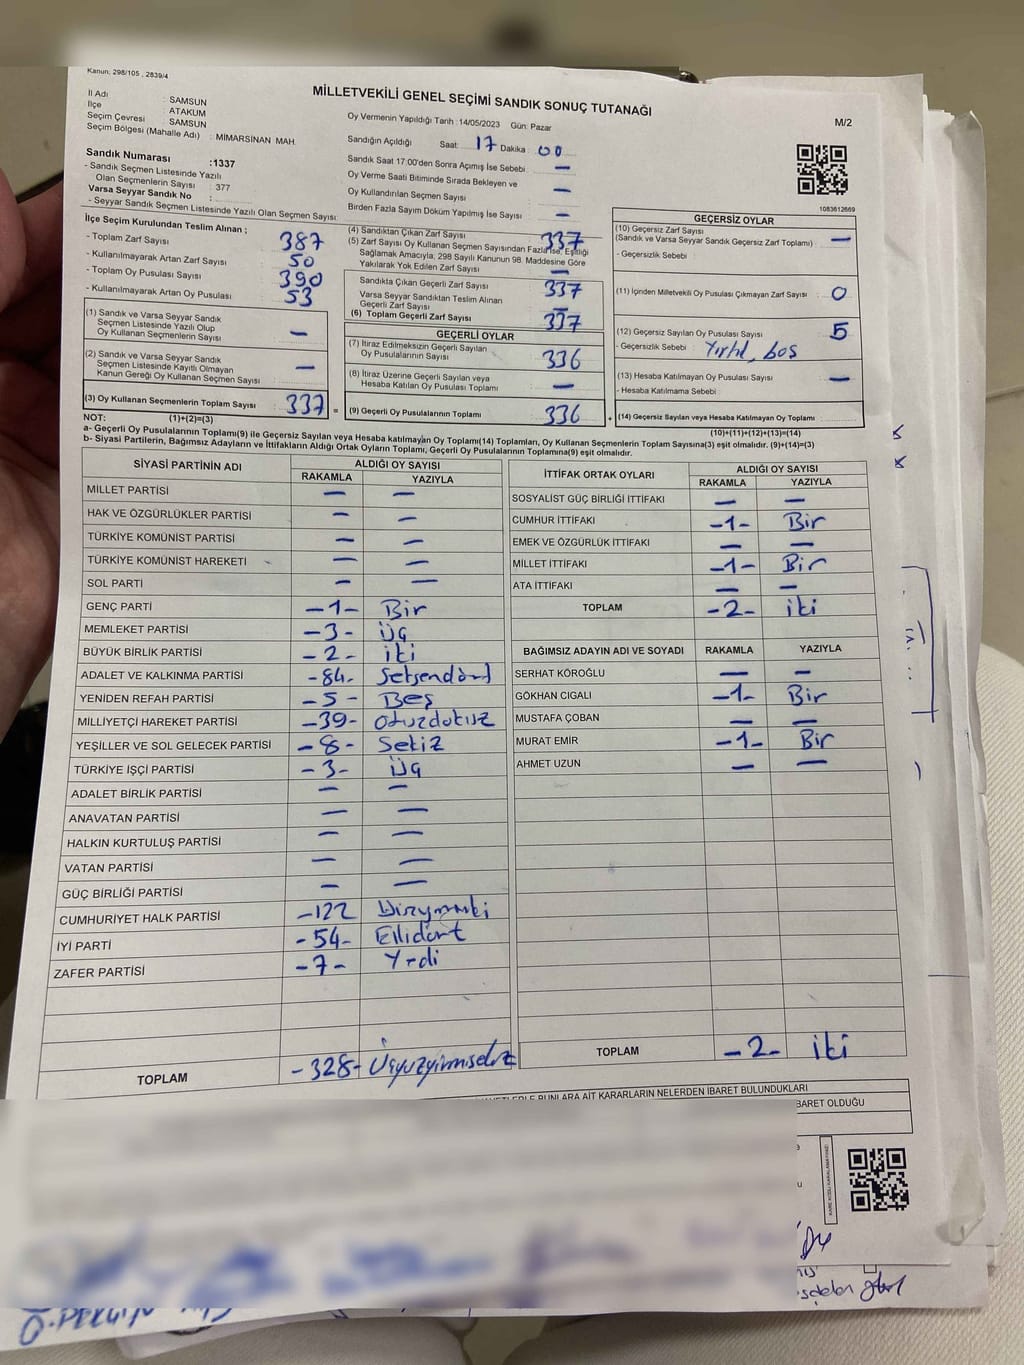 Kanun; 298/105 , 2839/4
MİLLETVEKİLİ GENEL SEÇİMİ SANDIK SONUÇ TUTANAĞI
M/2
İl Adı : SAMSUN
İlçe : ATAKUM
Seçim Çevresi : SAMSUN
Seçim Bölgesi (Mahalle Adı) : MİMARSİNAN MAH.
Sandık Numarası :1337
- Sandık Seçmen Listesinde Yazılı
Olan Seçmenlerin Sayısı : 377
Varsa Seyyar Sandık No :
- Seyyar Sandık Seçmen Listesinde Yazılı Olan Seçmen Sayısı:
Oy Vermenin Yapıldığı Tarih :14/05/2023 Gün: Pazar
Sandığın Açıldığı Saat: 17 Dakika : 00
Sandık Saat 17:00'den Sonra Açılmış İse Sebebi: —
Oy Verme Saati Bitiminde Sırada Bekleyen ve
Oy Kullandırılan Seçmen Sayısı —
Birden Fazla Sayım Döküm Yapılmış İse Sayısı —
1083612669
İlçe Seçim Kurulundan Teslim Alınan ;
- Toplam Zarf Sayısı 387
- Kullanılmayarak Artan Zarf Sayısı : 50
- Toplam Oy Pusulası Sayısı 390
- Kullanılmayarak Artan Oy Pusulası : 53
(1) Sandık ve Varsa Seyyar Sandık
Seçmen Listesinde Yazılı Olup
Oy Kullanan Seçmenlerin Sayısı : —
(2) Sandık ve Varsa Seyyar Sandık
Seçmen Listesinde Kayıtlı Olmayan
Kanun Gereği Oy Kullanan Seçmen Sayısı : —
(3) Oy Kullanan Seçmenlerin Toplam Sayısı : 337
(4) Sandıktan Çıkan Zarf Sayısı : 337
(5) Zarf Sayısı Oy Kullanan Seçmen Sayısından Fazla İse, Eşitliği
Sağlamak Amacıyla, 298 Sayılı Kanunun 98. Maddesine Göre
Yakılarak Yok Edilen Zarf Sayısı : —
Sandıkta Çıkan Geçerli Zarf Sayısı 337
Varsa Seyyar Sandıktan Teslim Alınan
Geçerli Zarf Sayısı : —
(6) Toplam Geçerli Zarf Sayısı : 337
GEÇERLİ OYLAR
(7) İtiraz Edilmeksizin Geçerli Sayılan
Oy Pusulalarının Sayısı 336
(8) İtiraz Üzerine Geçerli Sayılan veya
Hesaba Katılan Oy Pusulaları Toplamı —
= (9) Geçerli Oy Pusulalarının Toplamı 336
GEÇERSİZ OYLAR
(10) Geçersiz Zarf Sayısı
(Sandık ve Varsa Seyyar Sandık Geçersiz Zarf Toplamı) : —
- Geçersizlik Sebebi :
(11) İçinden Milletvekili Oy Pusulası Çıkmayan Zarf Sayısı : 0
(12) Geçersiz Sayılan Oy Pusulası Sayısı : 5
- Geçersizlik Sebebi : Yırtık, boş
(13) Hesaba Katılmayan Oy Pusulası Sayısı : —
- Hesaba Katılmama Sebebi :
+ (14) Geçersiz Sayılan veya Hesaba Katılmayan Oy Toplamı :
NOT: (1)+(2)=(3)
(10)+(11)+(12)+(13)=(14)
a- Geçerli Oy Pusulalarının Toplamı(9) ile Geçersiz Sayılan veya Hesaba katılmayan Oy Toplamı(14) Toplamları, Oy Kullanan Seçmenlerin Toplam Sayısına(3) eşit olmalıdır. (9)+(14)=(3)
b- Siyasi Partilerin, Bağımsız Adayların ve İttifakların Aldığı Ortak Oyların Toplamı, Geçerli Oy Pusulalarının Toplamına(9) eşit olmalıdır.
SİYASİ PARTİNİN ADI ALDIĞI OY SAYISI
RAKAMLA YAZIYLA
MİLLET PARTİSİ — —
HAK VE ÖZGÜRLÜKLER PARTİSİ — —
TÜRKİYE KOMÜNİST PARTİSİ — —
TÜRKİYE KOMÜNİST HAREKETİ — —
SOL PARTİ — —
GENÇ PARTİ -1- Bir
MEMLEKET PARTİSİ -3- üç
BÜYÜK BİRLİK PARTİSİ -2- iki
ADALET VE KALKINMA PARTİSİ -84- Seksendört
YENİDEN REFAH PARTİSİ -5- Beş
MİLLİYETÇİ HAREKET PARTİSİ -39- Otuzdokuz
YEŞİLLER VE SOL GELECEK PARTİSİ -8- Sekiz
TÜRKİYE İŞÇİ PARTİSİ -3- üç
ADALET BİRLİK PARTİSİ — —
ANAVATAN PARTİSİ — —
HALKIN KURTULUŞ PARTİSİ — —
VATAN PARTİSİ — —
GÜÇ BİRLİĞİ PARTİSİ — —
CUMHURİYET HALK PARTİSİ -122
İYİ PARTİ -54- Ellidört
ZAFER PARTİSİ -7- Yedi
TOPLAM -328- Üçyüzyirmisekiz
İTTİFAK ORTAK OYLARI ALDIĞI OY SAYISI
RAKAMLA YAZIYLA
SOSYALİST GÜÇ BİRLİĞİ İTTİFAKI — —
CUMHUR İTTİFAKI -1- Bir
EMEK VE ÖZGÜRLÜK İTTİFAKI — —
MİLLET İTTİFAKI -1- Bir
ATA İTTİFAKI — —
TOPLAM -2- iki
BAĞIMSIZ ADAYIN ADI VE SOYADI RAKAMLA YAZIYLA
SERHAT KÖROĞLU — —
GÖKHAN CIGALI -1- Bir
MUSTAFA ÇOBAN — —
MURAT EMİR -1- Bir
AHMET UZUN — —
TOPLAM -2- iki
BUNLARA AİT KARARLARIN NELERDEN İBARET BULUNDUKLARI
İBARET OLDUĞU